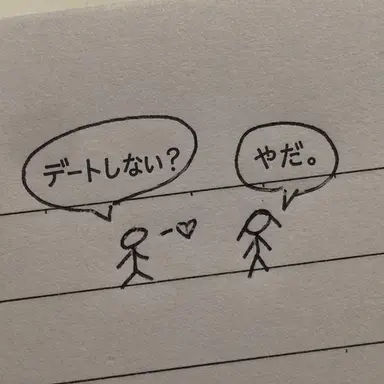 デートしない?
やだ。